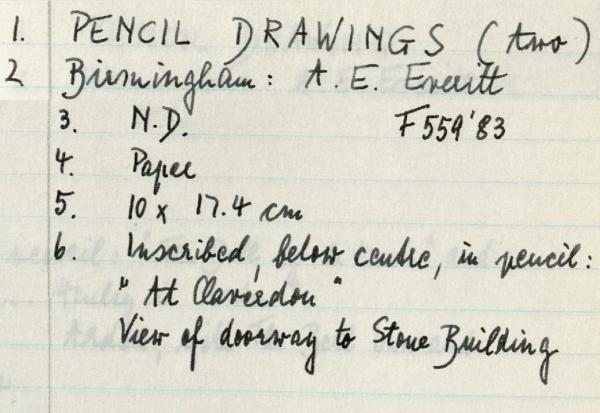 1. PENCIL DRAWINGS (two)
2 Birmingham: A. E. Everitt
3. N.D. F559'83
4. Paper
5. 10 x 17.4 cm
6. Inscribed, below centre, in pencil:
"At Claverdon"
View of doorway to Stone Building